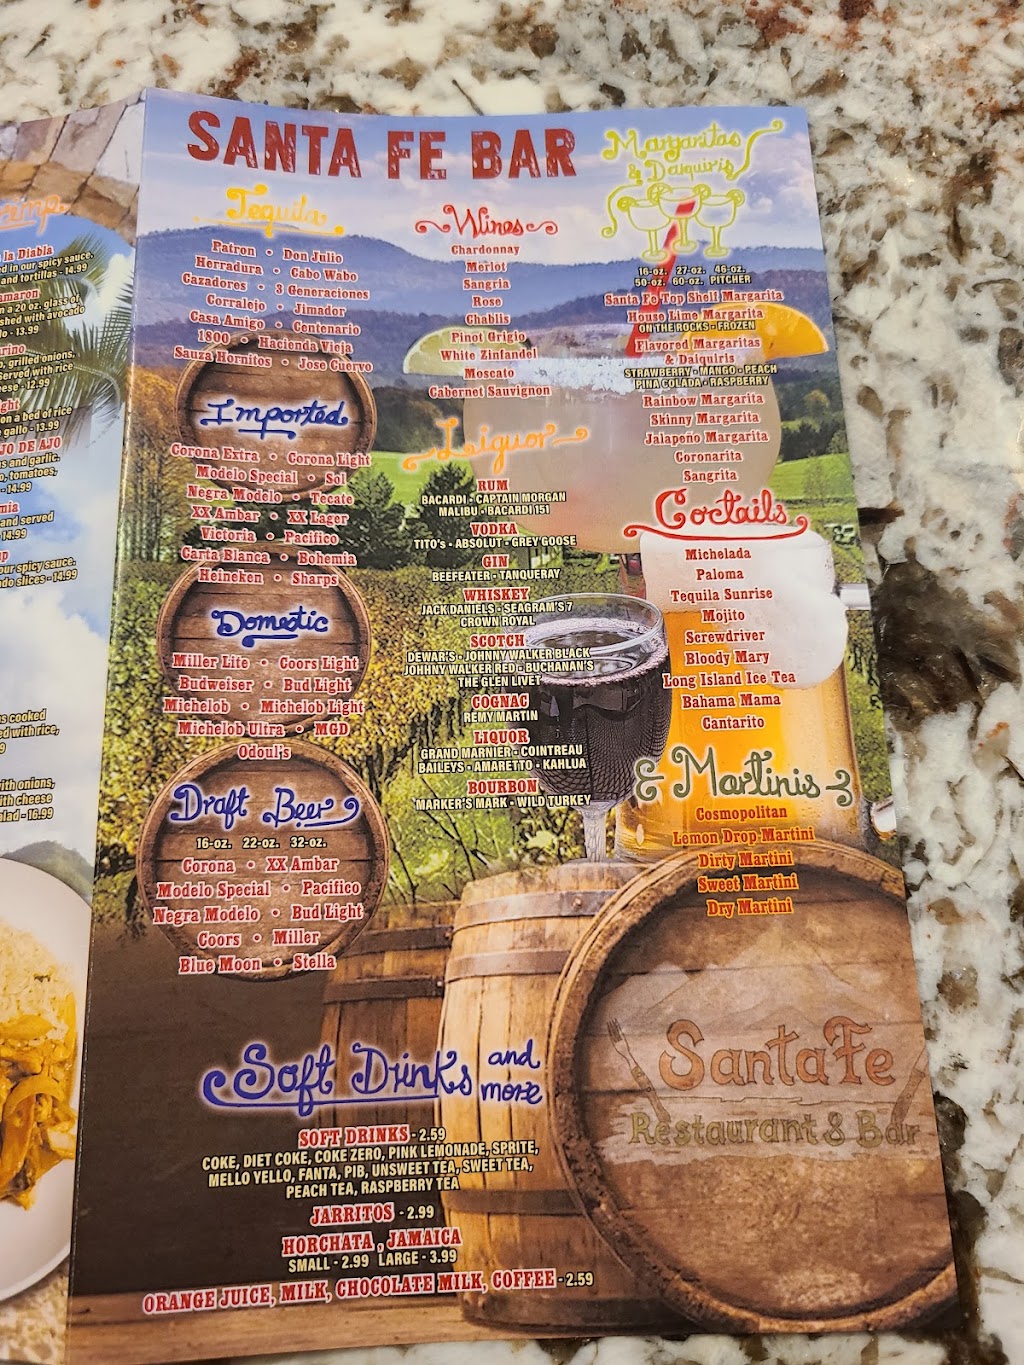 la Diabla
ed in our spicy sauce.
and tortillas - 14.99
amaron
n a 20 oz. glass of
shed with avocado
lo - 13.99
rino
o, grilled onions,
served with rice
eese - 12.99
ght
on a bed of rice
gallo - 13.99
JO DE AJO
s and garlic.
o, tomatoes,
- 14.99
mia
and served
14.99
p
our spicy sauce.
do slices - 14.99
s cooked
ed with rice,
9
ith onions,
ith cheese
alad - 16.99
SANTA FE BAR
Tequila
Patron • Don Julio
Herradura • Cabo Wabo
Cazadores • 3 Generaciones
Corralejo • Jimador
Casa Amigo • Centenario
1800 • Hacienda Vieja
Sauza Hornitos • Jose Cuervo
Imported
Corona Extra • Corona Light
Modelo Special • Sol
Negra Modelo • Tecate
XX Ambar • XX Lager
Victoria • Pacifico
Carta Blanca • Bohemia
Heineken • Sharps
Domestic
Miller Lite • Coors Light
Budweiser • Bud Light
Michelob • Michelob Light
Michelob Ultra • MGD
Odoul's
Draft Beer
16-oz. 22-oz. 32-oz.
Corona • XX Ambar
Modelo Special • Pacifico
Negra Modelo • Bud Light
Coors • Miller
Blue Moon • Stella
Wines
Chardonnay
Merlot
Sangria
Rose
Chablis
Pinot Grigio
White Zinfandel
Moscato
Cabernet Sauvignon
Leiguor
RUM
BACARDI - CAPTAIN MORGAN
MALIBU - BACARDI 151
VODKA
TITO's - ABSOLUT - GREY GOOSE
GIN
BEEFEATER - TANQUERAY
WHISKEY
JACK DANIELS - SEAGRAM'S 7
CROWN ROYAL
SCOTCH
DEWAR'S - JOHNNY WALKER BLACK
JOHHNY WALKER RED - BUCHANAN'S
THE GLEN LIVET
COGNAC
REMY MARTIN
LIQUOR
GRAND MARNIER - COINTREAU
BAILEYS - AMARETTO - KAHLUA
BOURBON
MARKER'S MARK - WILD TURKEY
Margaritas
& Daiquiris
16-oz. 27-oz. 46-oz.
50-oz. 60-oz. PITCHER
Santa Fe Top Shelf Margarita
House Lime Margarita
ON THE ROCKS - FROZEN
Flavored Margaritas
& Daiquiris
STRAWBERRY - MANGO - PEACH
PINA COLADA - RASPBERRY
Rainbow Margarita
Skinny Margarita
Jalapeño Margarita
Coronarita
Sangrita
Coctails
Michelada
Paloma
Tequila Sunrise
Mojito
Screwdriver
Bloody Mary
Long Island Ice Tea
Bahama Mama
Cantarito
& Martinis
Cosmopolitan
Lemon Drop Martini
Dirty Martini
Sweet Martini
Dry Martini
Soft Drinks and
more
SOFT DRINKS - 2.59
COKE, DIET COKE, COKE ZERO, PINK LEMONADE, SPRITE,
MELLO YELLO, FANTA, PIB, UNSWEET TEA, SWEET TEA,
PEACH TEA, RASPBERRY TEA
JARRITOS - 2.99
HORCHATA , JAMAICA
SMALL - 2.99 LARGE - 3.99
ORANGE JUICE, MILK, CHOCOLATE MILK, COFFEE - 2.59
SantaFe
Restaurant & Bar